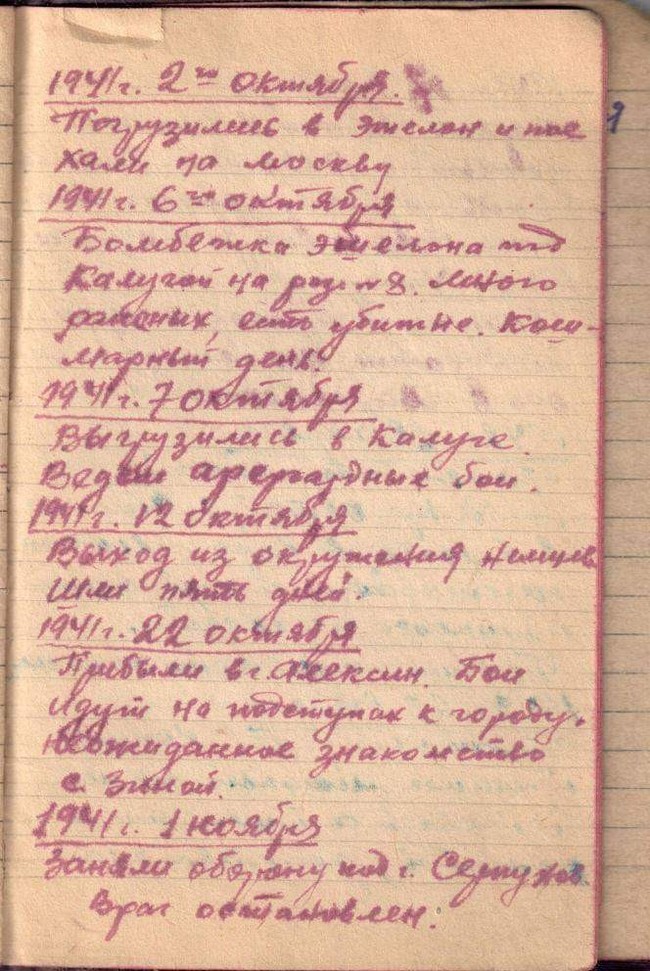 1941 г. 2го октября.
Погрузились в эшелон и пое
хали на Москву
1941 г. 6го октября
Бомбежка эшелона под
Калугой на раз. №8. Много
раненых, есть убитые. Кош-
марный день.
1941 г. 7 октября
Выгрузились в Калуге.
Ведем арергардные бои.
1941 г. 12 октября
Выход из окружения немцев.
Шли пять дней.
1941 г. 22 октября
Прибыли в г. Алексин. Бои
идут на подступах к городу.
Неожиданное знакомство
с Зиной.
1941 г. 1 ноября
Заняли оборону под г. Серпухов.
Враг остановлен.